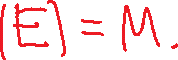 |E| = M.